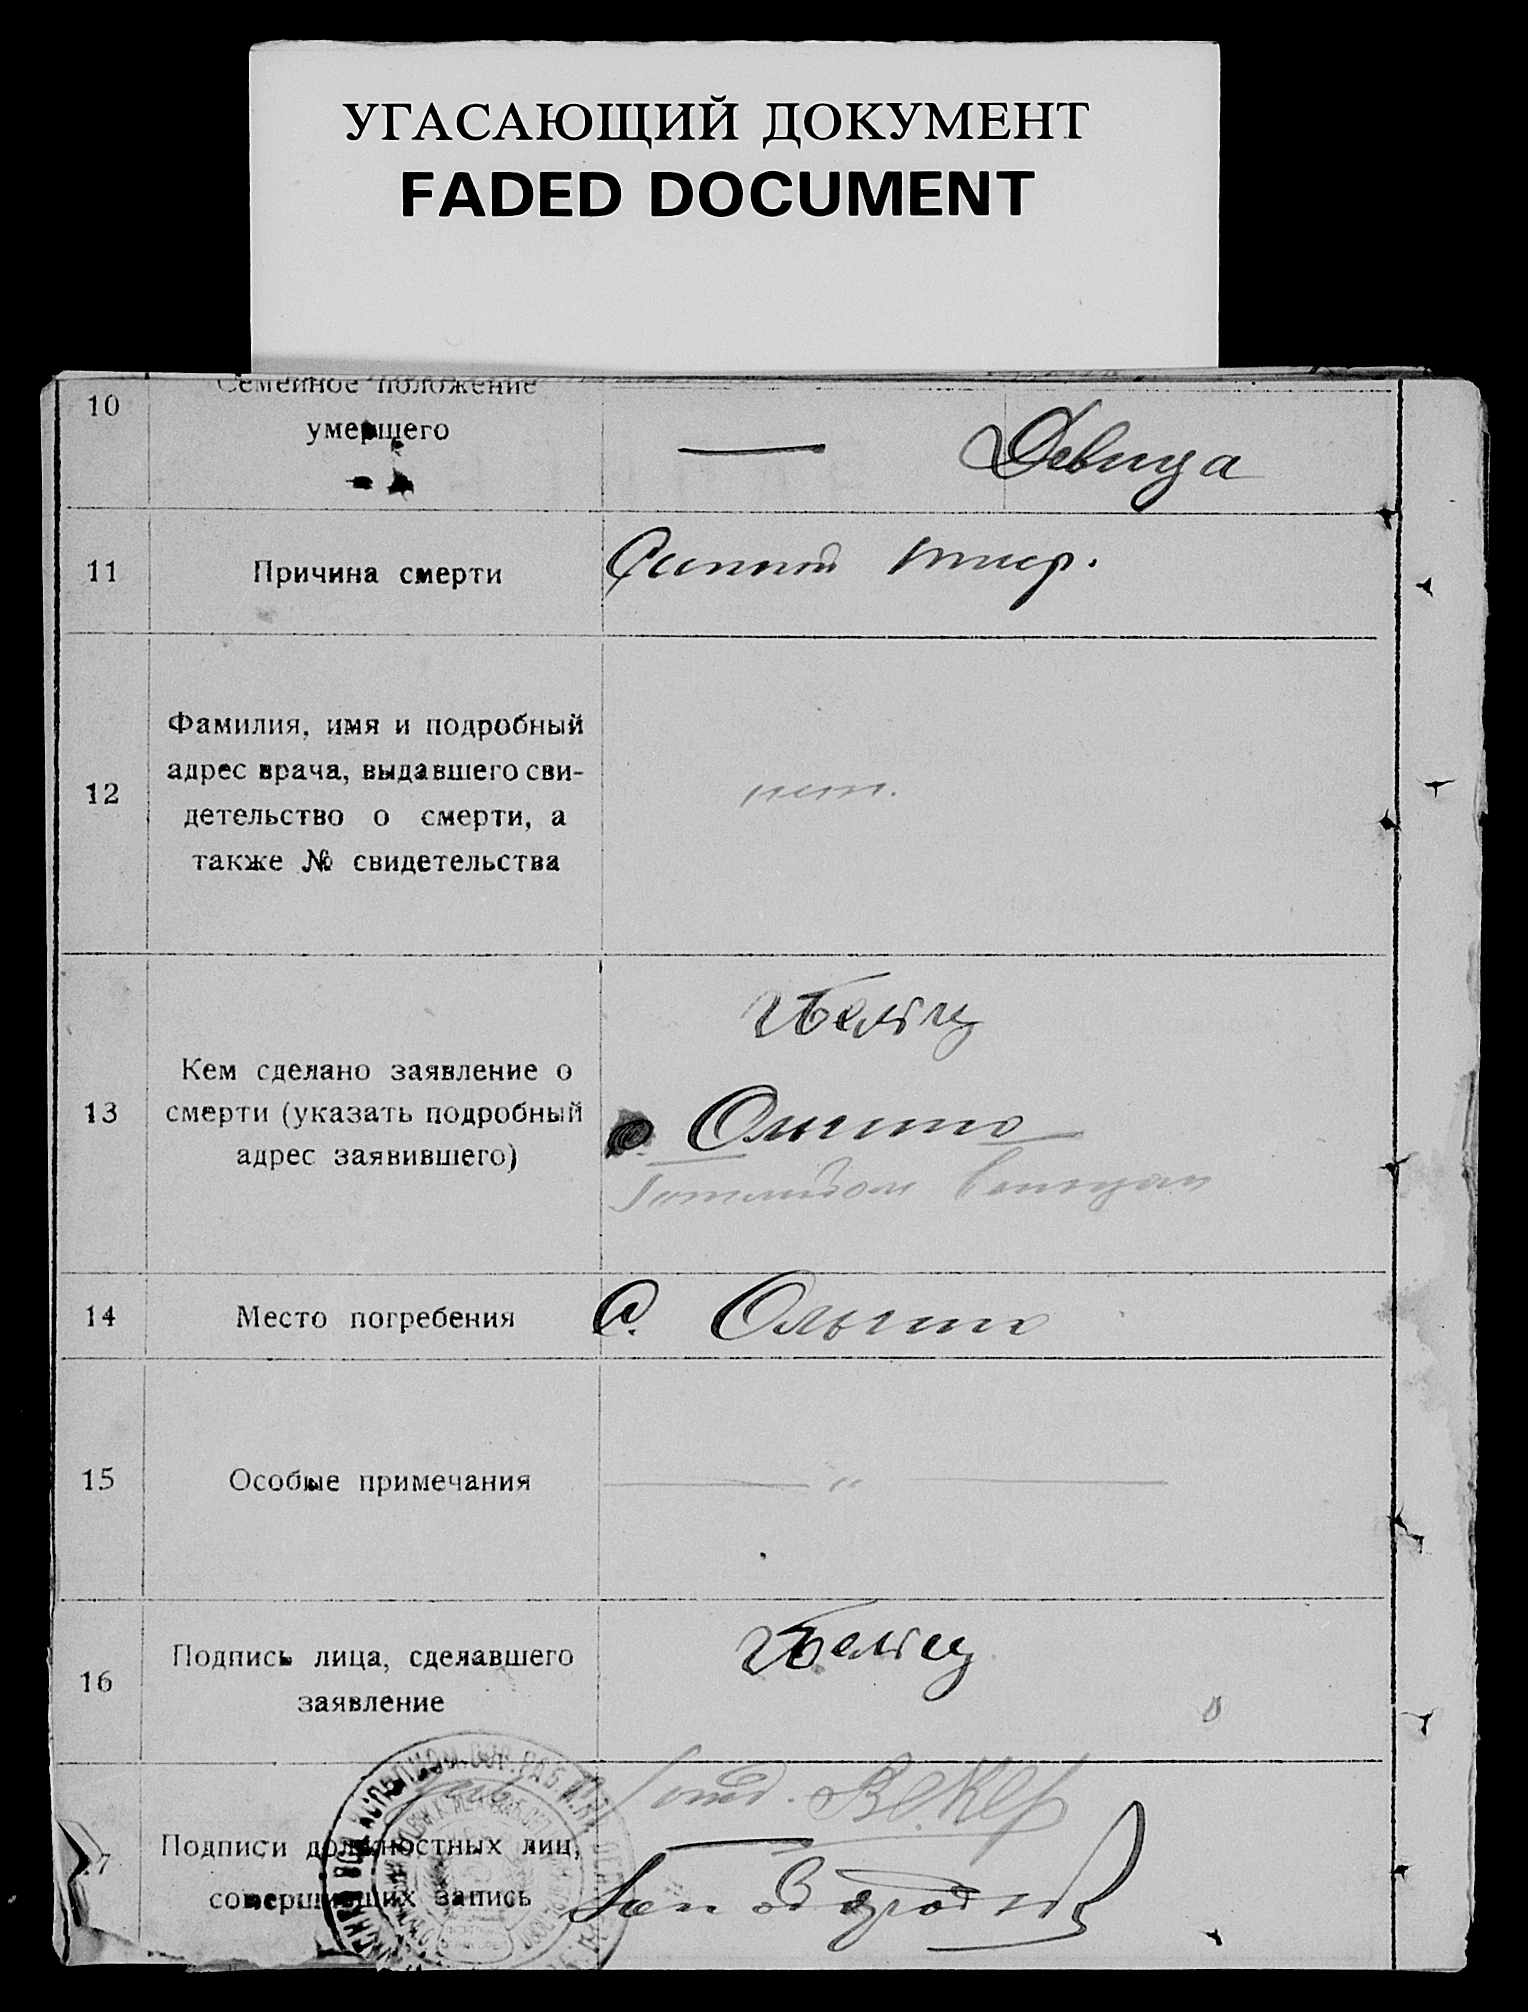 УГАСАЮЩИЙ ДОКУМЕНТ
FADED DOCUMENT
10
Семейное положение
умершего
— Девица
11
Причина смерти
Сыпной тиф.
12
Фамилия, имя и подробный
адрес врача, выдавшего сви-
детельство о смерти, а
также № свидетельства
нет.
13
Кем сделано заявление о
смерти (указать подробный
адрес заявившего)
Ольгино
14
Место погребения
С. Ольгино
15
Особые примечания
— „ —
16
Подпись лица, сделавшего
заявление
17
Подписи должностных лиц,
совершивших запись